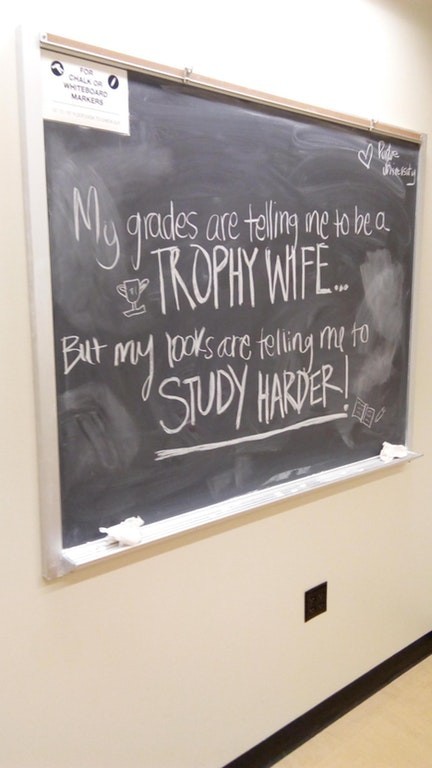 FOR
CHALK OR
WHITEBOARD
MARKERS
♡ Purdue
University
My grades are telling me to be a
TROPHY WIFE...
#1
But my looks are telling me to
STUDY HARDER!